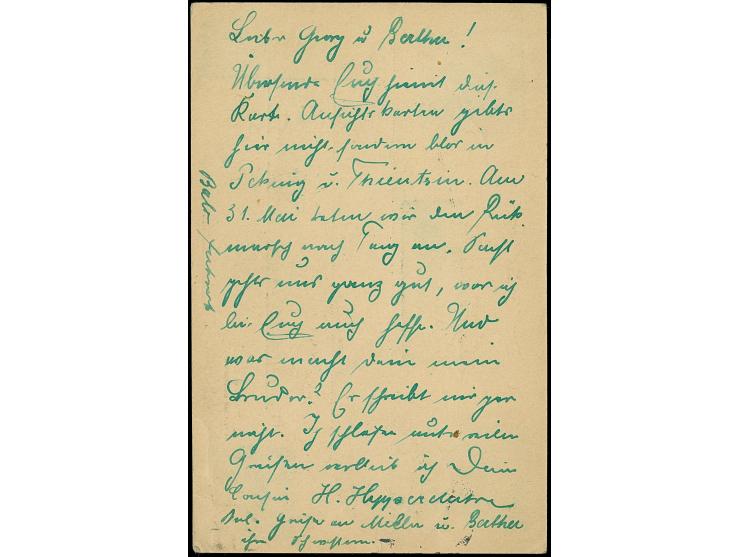 Liebr Georg u Berther!
Übersende Euch hiemit dise
Karte. Ansichtskarten gibts
hier nicht, sondern blos in
Peking u. Thientsin. Am
31. Mai treten wir den Rük
marsch nach Tang an. Sonst
gehts uns ganz gut, was ich
bei Euch auch hoffe. Und
was macht denn mein
Bruder? Er schreibt mir gar
nicht. Ich schließe unter vielen
Grüßen verbleib ich Dein
Cousin H.
Grüße an u. Berther
ihre Schwestern.
Bald